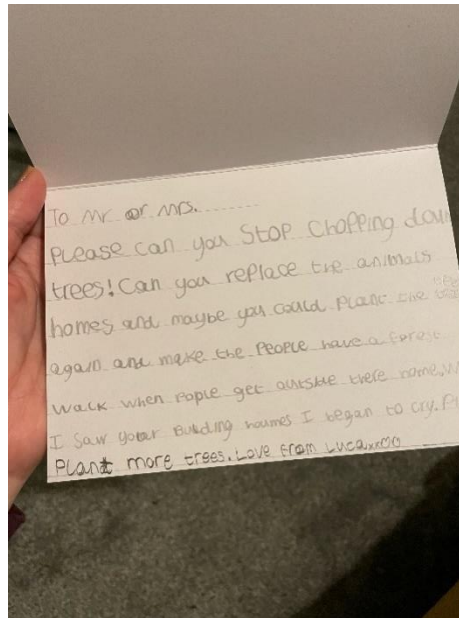 To Mr or Mrs. ............
please can you STOP Chopping dow
trees! Can you replace the animals
homes and maybe you could plant the
again and make the PEOPLE have a forest
walk when eople get outside there home. W
I saw your Building houmes I began to cry. Pl
Plant more trees. Love from Lucaxx00